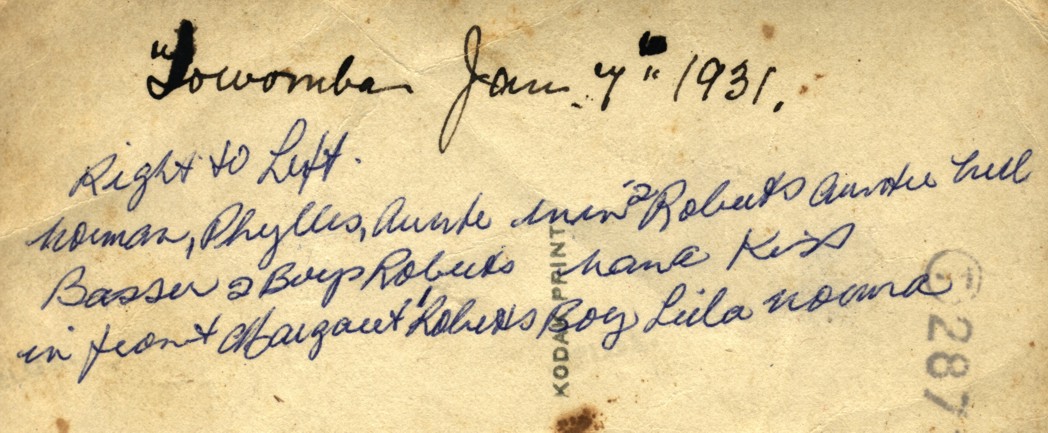 "Towomba Jan. 7" 1931.
Right to Left.
Norman, Phyllis, Auntie Roberts Auntie Nell
Basser & Boys Roberts Nana Kiss
in front Margaret Roberts Boy Lula Norma
KODAK PRINT
287